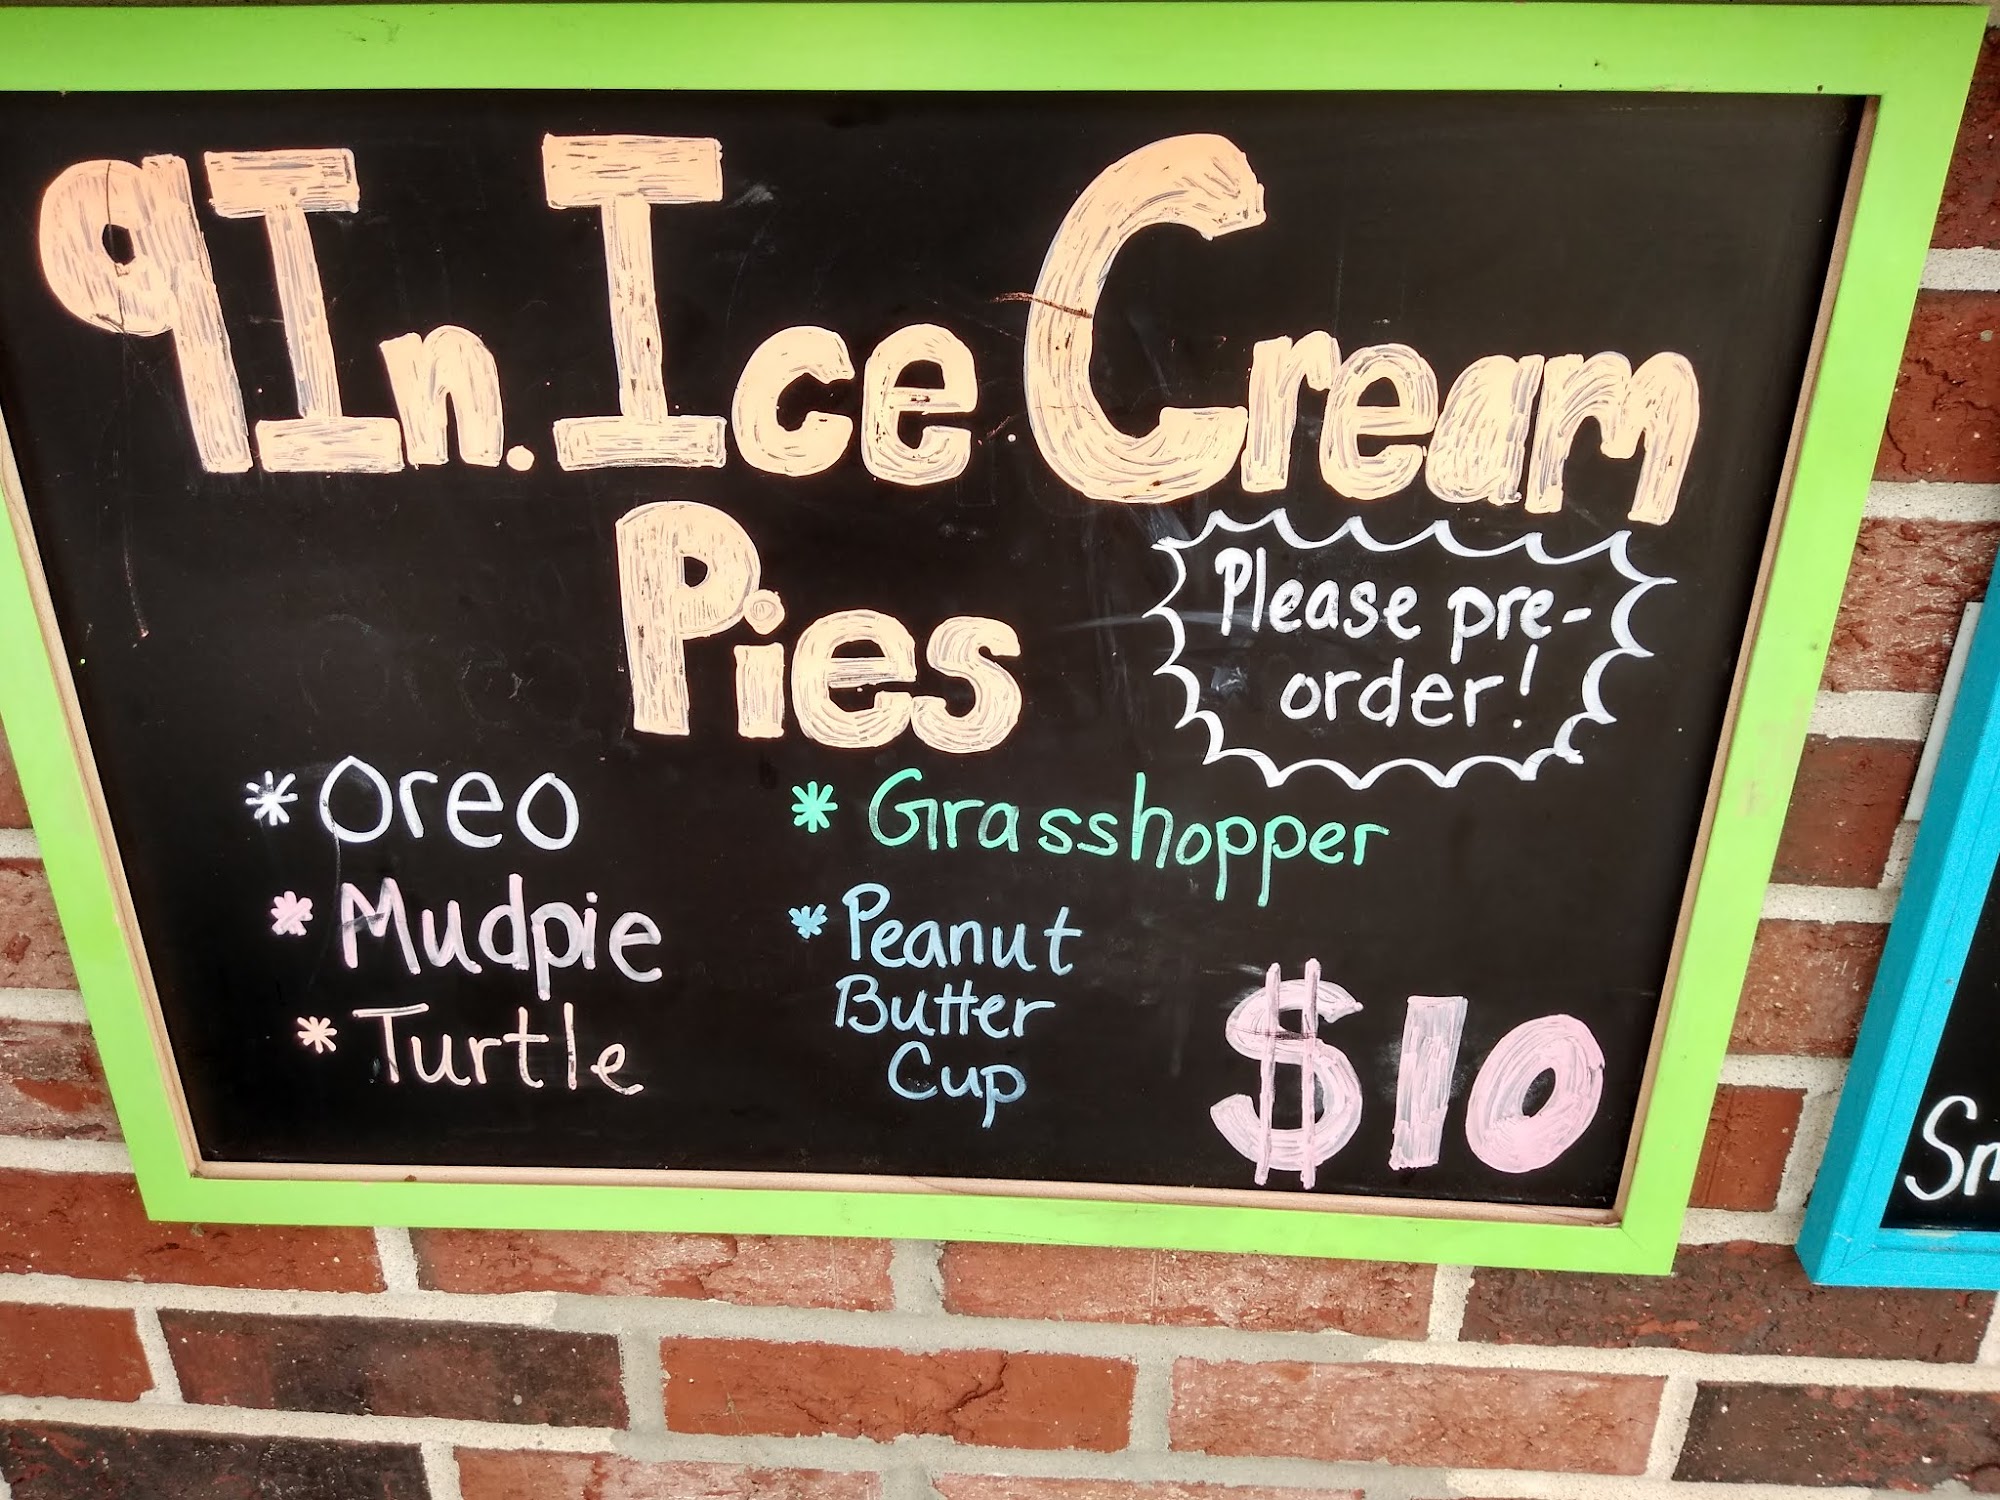 9In. Ice Cream
Pies
Please pre-
order!
* Oreo
* Mudpie
* Turtle
* Grasshopper
* Peanut
Butter
Cup
$10